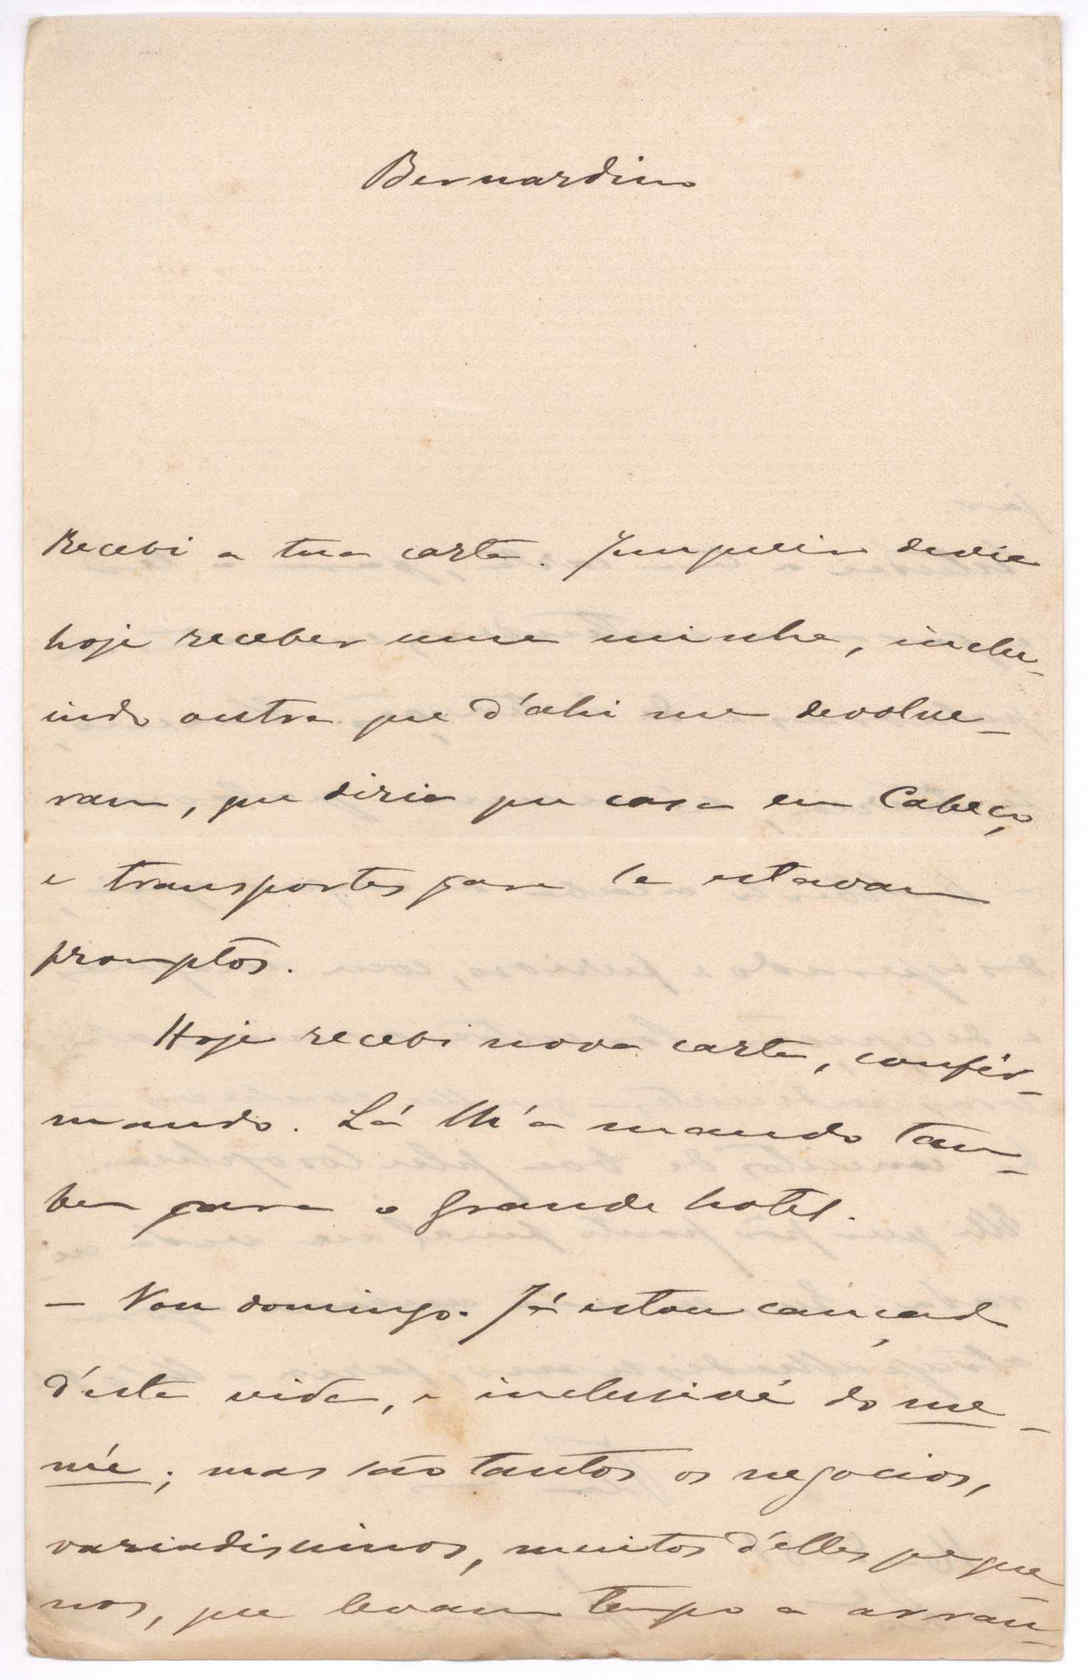 Bernardino
Recebi a tua carta. Junqueiro devia
hoje receber uma minha, inclu-
indo outra que d'ahi me devolve-
ram, que dizia que casa em Cabeço,
e transportes para la estavam
promptos.
Hoje recebi nova carta, confir-
mando. Lá lh'a mando tam-
bem para o Grande hotel.
— Vou domingo. Já estou cançado
d'esta vida, e inclusivé do me-
nú; mas são tantos os negocios,
variadissimos, muitos d'elles peque
nos, que levam tempo a arran-